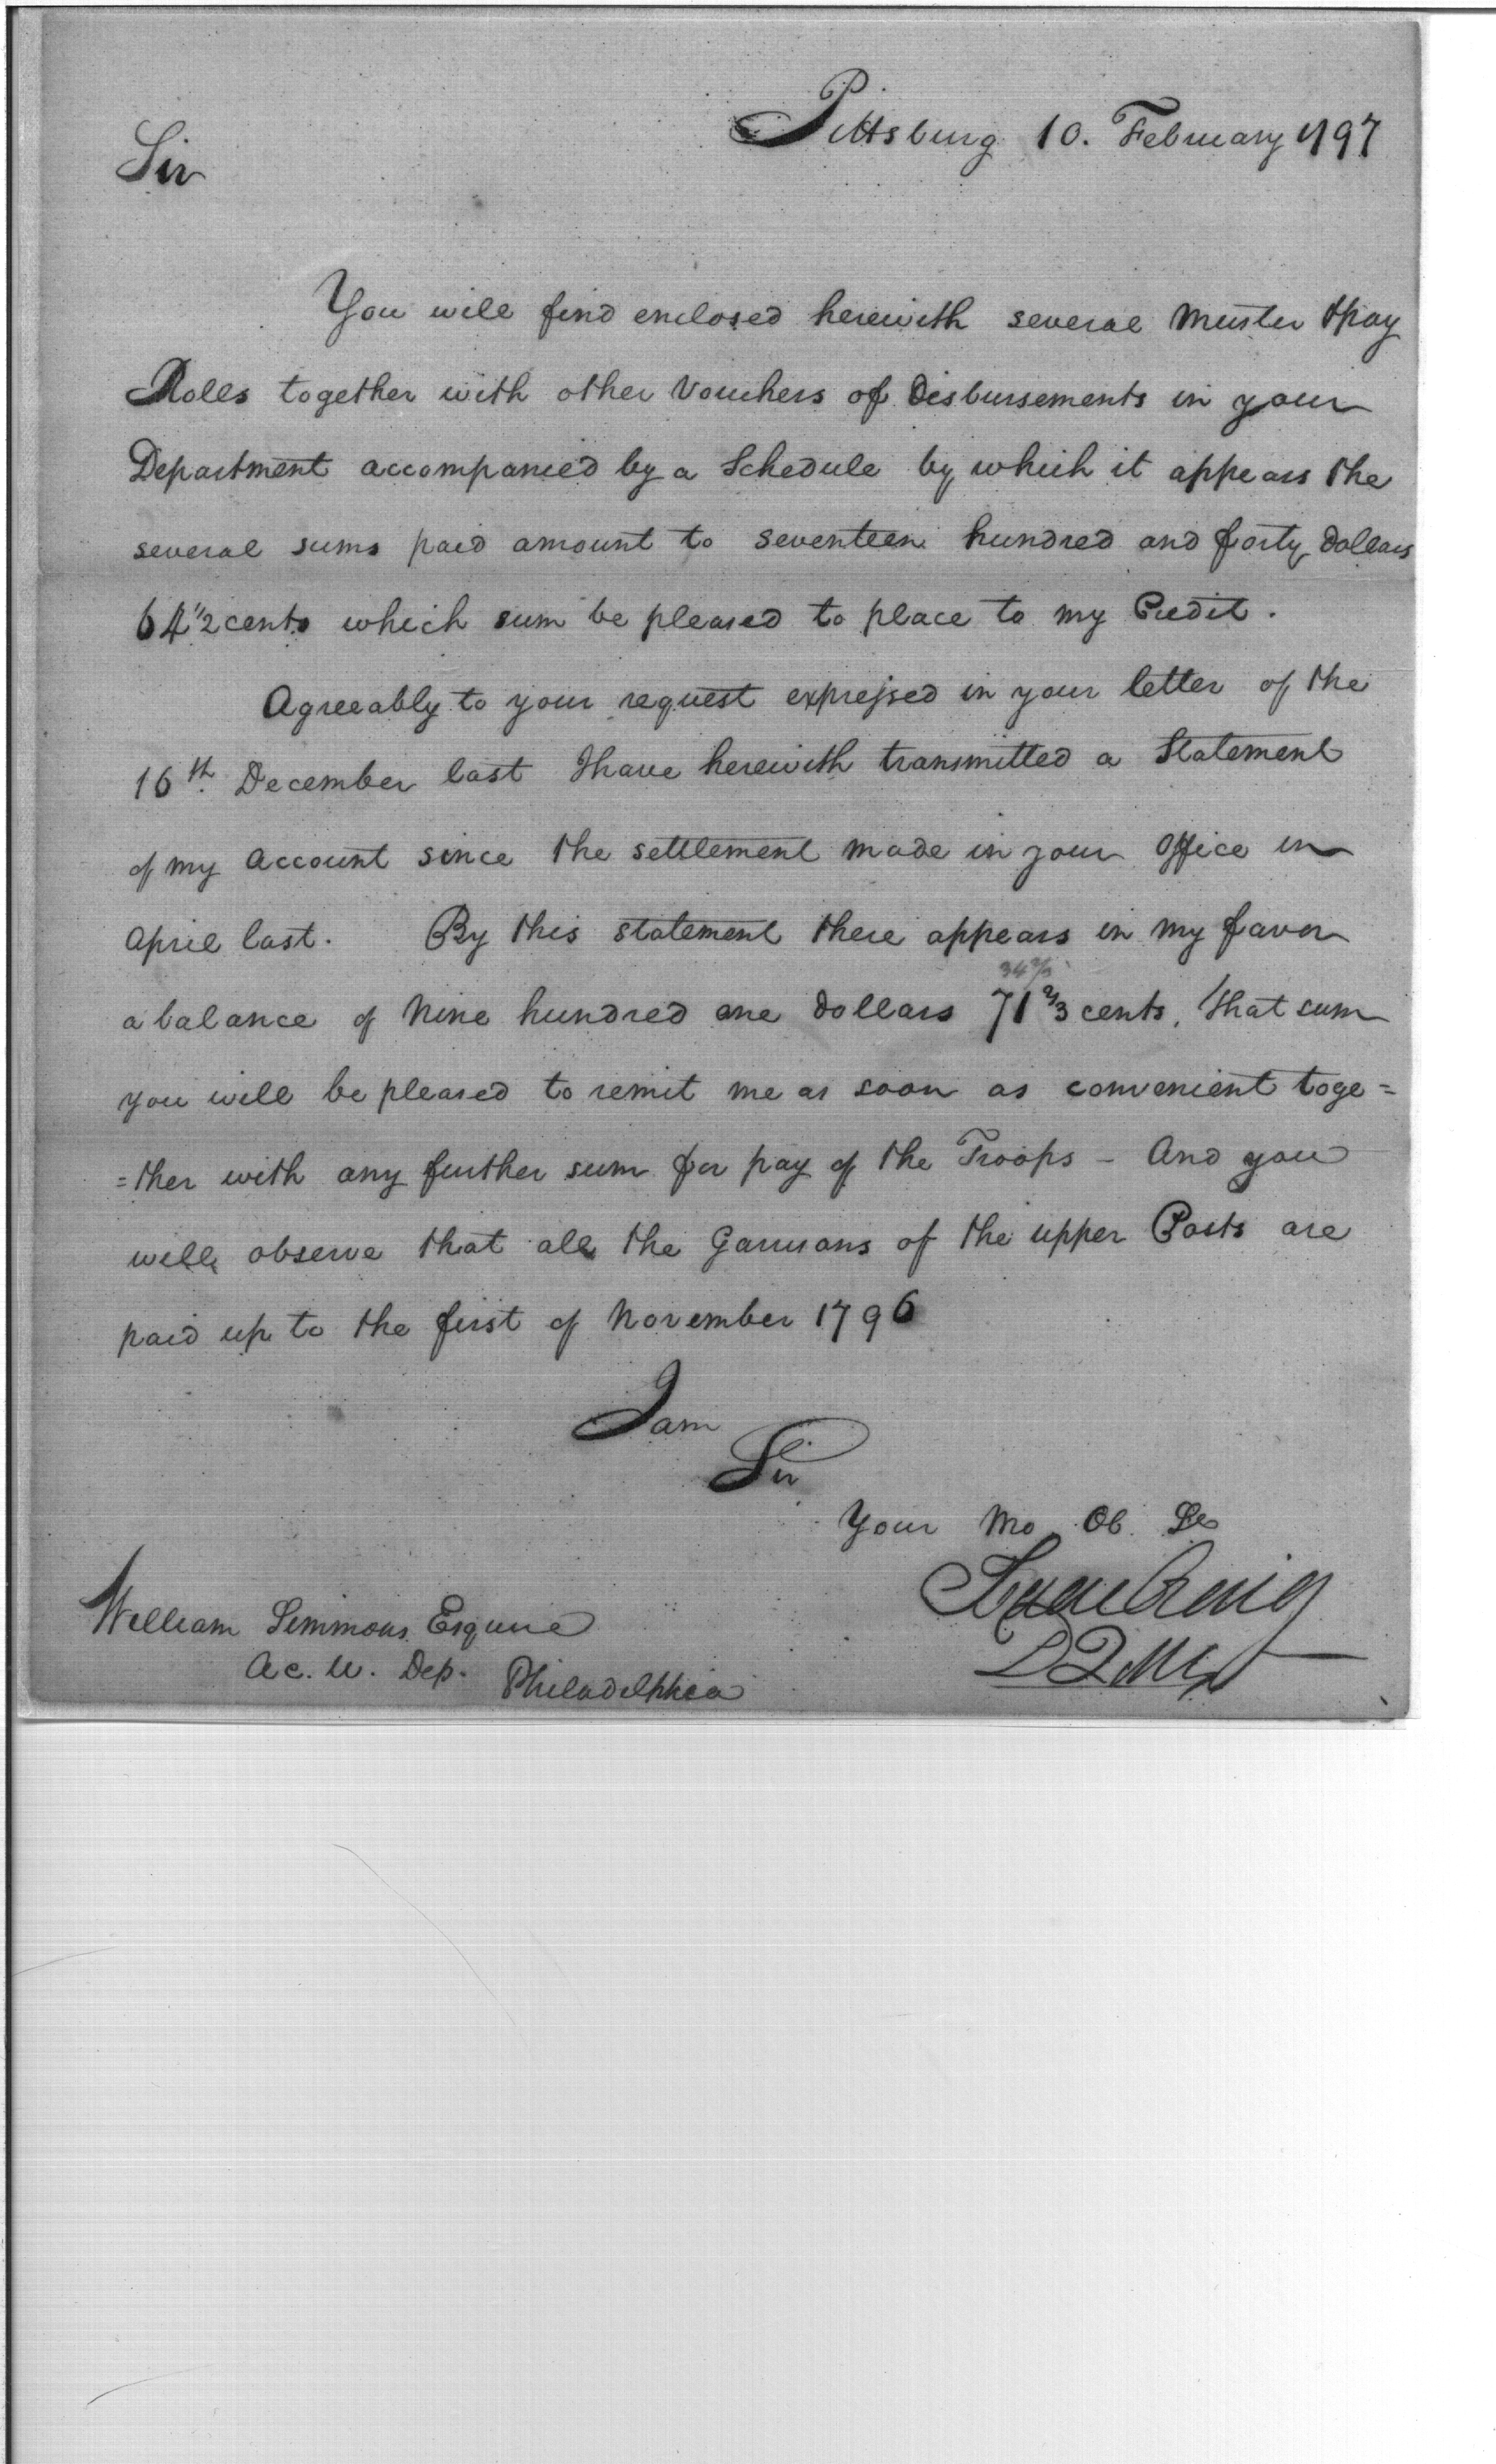 Pittsburg 10. February 1797
Sir
You will find enclosed herewith several Muster & pay
Rolls together with other Vouchers of Disbursements in your
Department accompanied by a Schedule by which it appears the
several sums paid amount to seventeen hundred and forty dollars
64 1/2 cents which sum be pleased to place to my Credit.
Agreeably to your request expressed in your letter of the
16th December last I have herewith transmitted a Statement
of my Account since the settlement made in your Office in
April last. By this statement there appears in my favor
34 2/3
a balance of Nine hundred one dollars 71 2/3 cents, that sum
you will be pleased to remit me as soon as convenient toge=
=ther with any further sum for pay of the Troops - And you
will observe that all the Garrisons of the upper Posts are
paid up to the first of November 1796
I am
Sir
Your Mo Ob Se
Isaac Craig
DQMG
William Simmons Esquire
Ac. W. Dep. Philadelphia